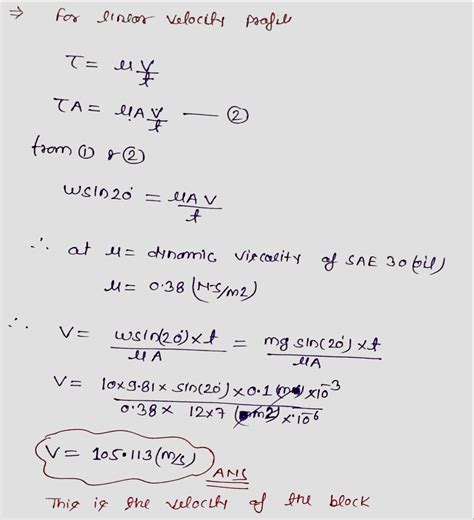 ⇒ For linear velocity profile
τ = μ V/t
τA = μA V/t —— ②
from ① & ②
wsin20° = μAV/t
∴ at μ = dynamic viscality of SAE 30 (oil)
μ = 0.38 (N-S/m2)
∴ V = wsin(20°)×t / μA = mg sin(20°)×t / μA
V = 10×9.81× sin(20°)×0.1 ×10⁻³ / 0.38× 12×7 ×10⁻⁶
V = 105.113 (m/s) ANS
This is the velocity of the block